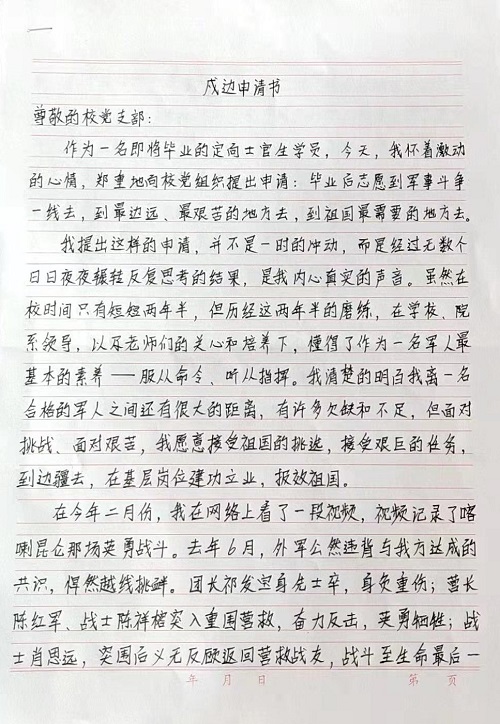 戍边申请书
尊敬的校党支部：
作为一名即将毕业的定向士官生学员，今天，我怀着激动
的心情，郑重地向校党组织提出申请：毕业后志愿到军事斗争
一线去，到最边远、最艰苦的地方去，到祖国最需要的地方去。
我提出这样的申请，并不是一时的冲动，而是经过无数个
日日夜夜辗转反复思考的结果，是我内心真实的声音。虽然在
校时间只有短短两年半，但历经这两年半的磨练，在学校、院
系领导，以及老师们的关心和培养下，懂得了作为一名军人最
基本的素养——服从命令、听从指挥。我清楚的明白我离一名
合格的军人之间还有很大的距离，有许多欠缺和不足，但面对
挑战、面对艰苦，我愿意接受祖国的挑选，接受艰巨的任务，
到边疆去，在基层岗位建功立业，报效祖国。
在今年二月份，我在网络上看了一段视频，视频记录了喀
喇昆仑那场英勇战斗。去年6月，外军公然违背与我方达成的
共识，悍然越线挑衅。团长祁发宝身先士卒，身负重伤；营长
陈红军、战士陈祥榕突入重围营救，奋力反击，英勇牺牲；战
士肖思远，突围后义无反顾返回营救战友，战斗至生命最后一
年 月 日 第 页